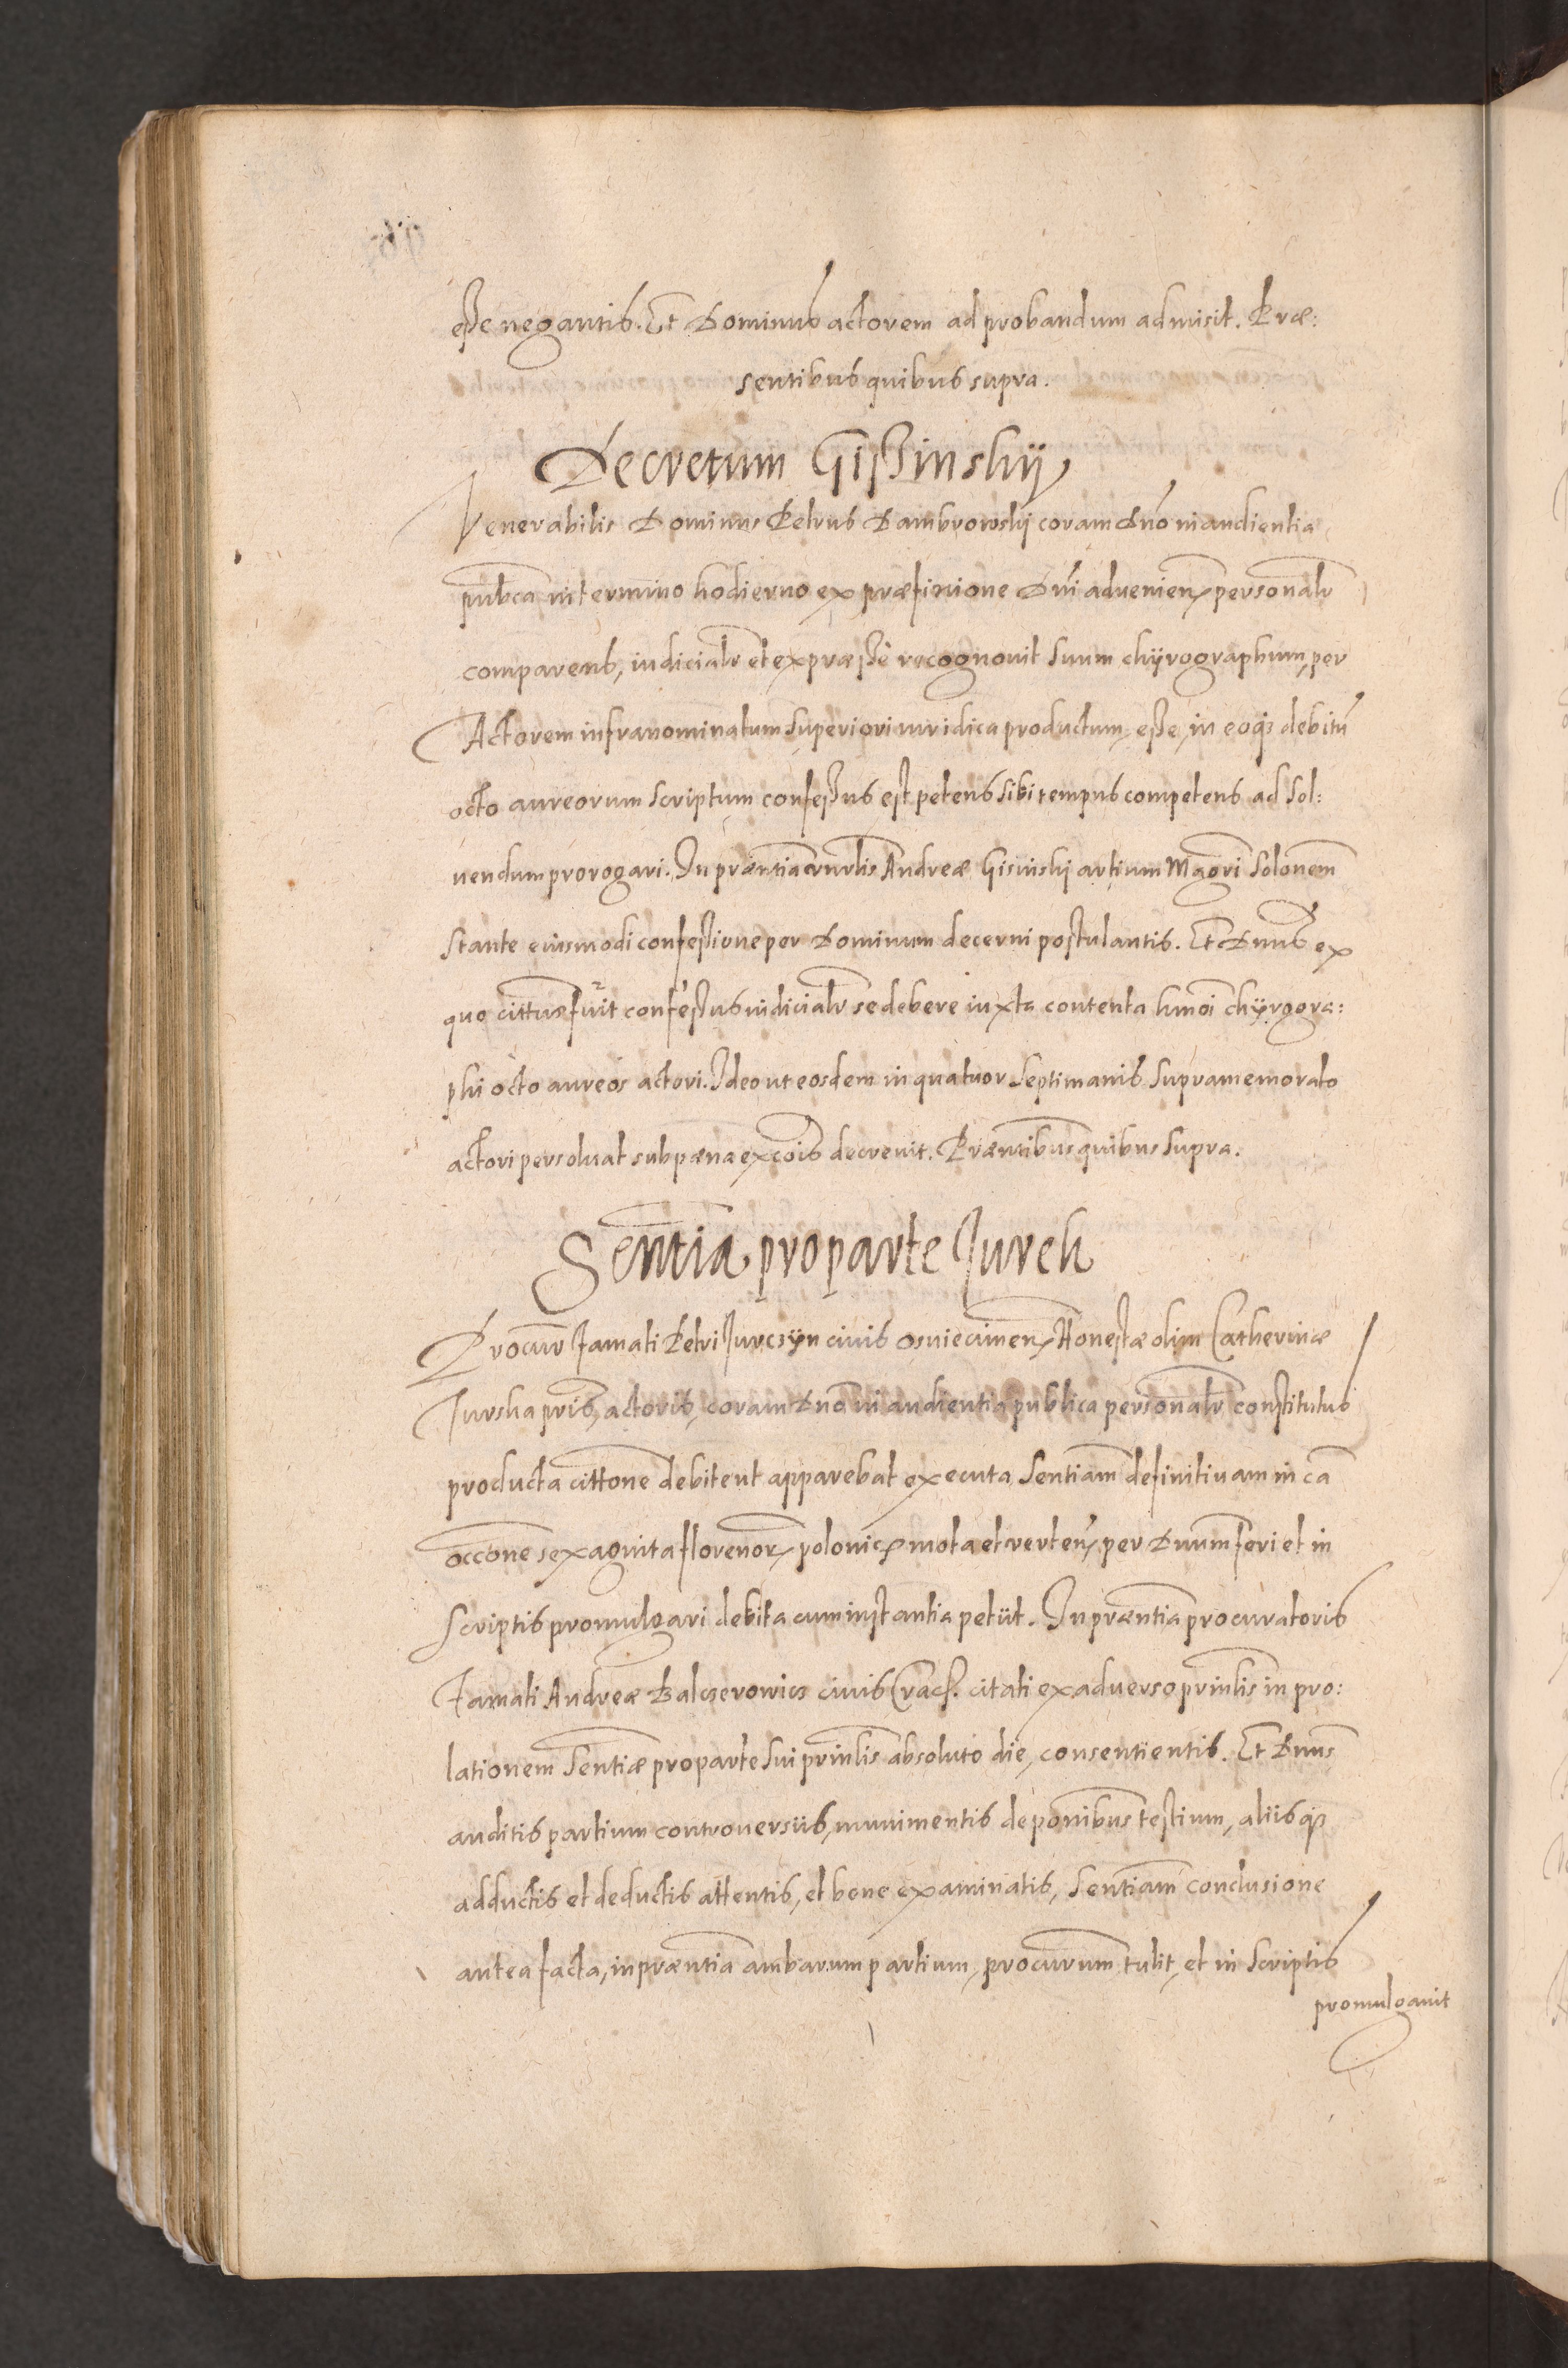 esse negantis. Et Dominus actorem ad probandum admisit. Præ:
sentibus quibus supra.
Decretum Gissinskij
Venerabilis Dominus Petrus Dambrowskij coram Dno in audientia
pubca in termino hodierno ex præfixione Dni advenien personalr
comparens, iudicialr et expræssè recognovit suum chÿrographum, per
Actorem infranominatum superiori iuridica productum, esse, in eoq3 debitū
octo aureorum scriptum confessus est, petens sibi tempus competens ad sol:
uendum prorogari. In præntia Andreæ Gisinskij artium Magri Solonem
stante eiusmodi confessione per Dominum decerni postulantis. Et Dnus ex
quo cittus fuit confessus iudicialr se debere iuxta contenta hmoi chÿrogra:
phi octo aureos actori. Ideo ut eosdem in quatuor septimanis supramemorato
actori persoluat sub pæna excois decreuit. Præntibus quibus supra.
Sentia pro parte Jurek
Procur famati Petri Jurczÿn ciuis Osviecimen, Honestæ olim Catherinæ
Jurska pris, actoris, coram Dno in audientia publica personalr constitutus
producta cittone debite ut apparebat executa, Sentiam definitivam in ca
occone sexaginta florenor polonic mota et verten, per Dnum feri et in
scriptis promulgari debita cum instantia petiit. In præntia procuratoris
famati Andreæ Balczerowicz ciuis Crac. citati ex aduerso prinlis in pro:
lationem Sentiæ pro parte sui prinlis absoluto die, consentientis. Et Dnus
auditis partium controuersiis, munimentis deponibus testium, aliisq3
adductis et deductis attentis, et bene examinatis, Sentiam conclusione
antea facta, in præntia ambarum partium, procurum tulit, et in scriptis
promulgauit